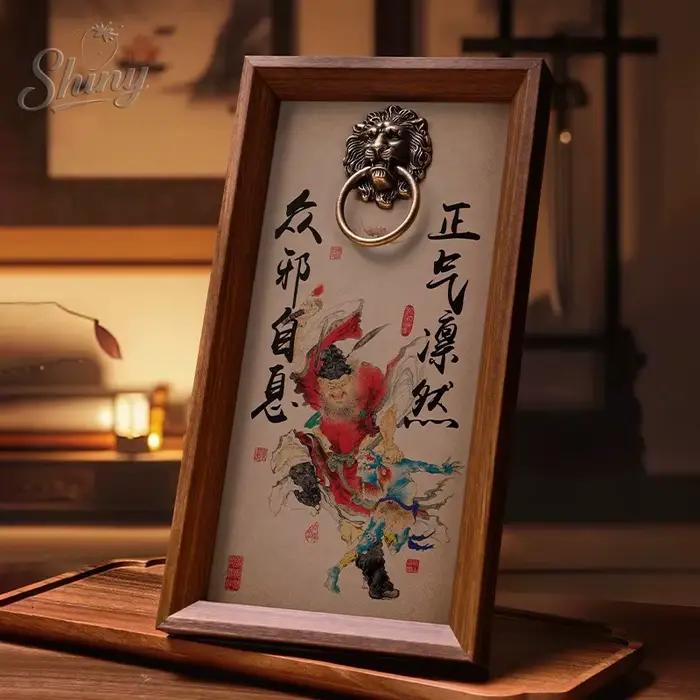 Shiny
正气凛然
众邪自息